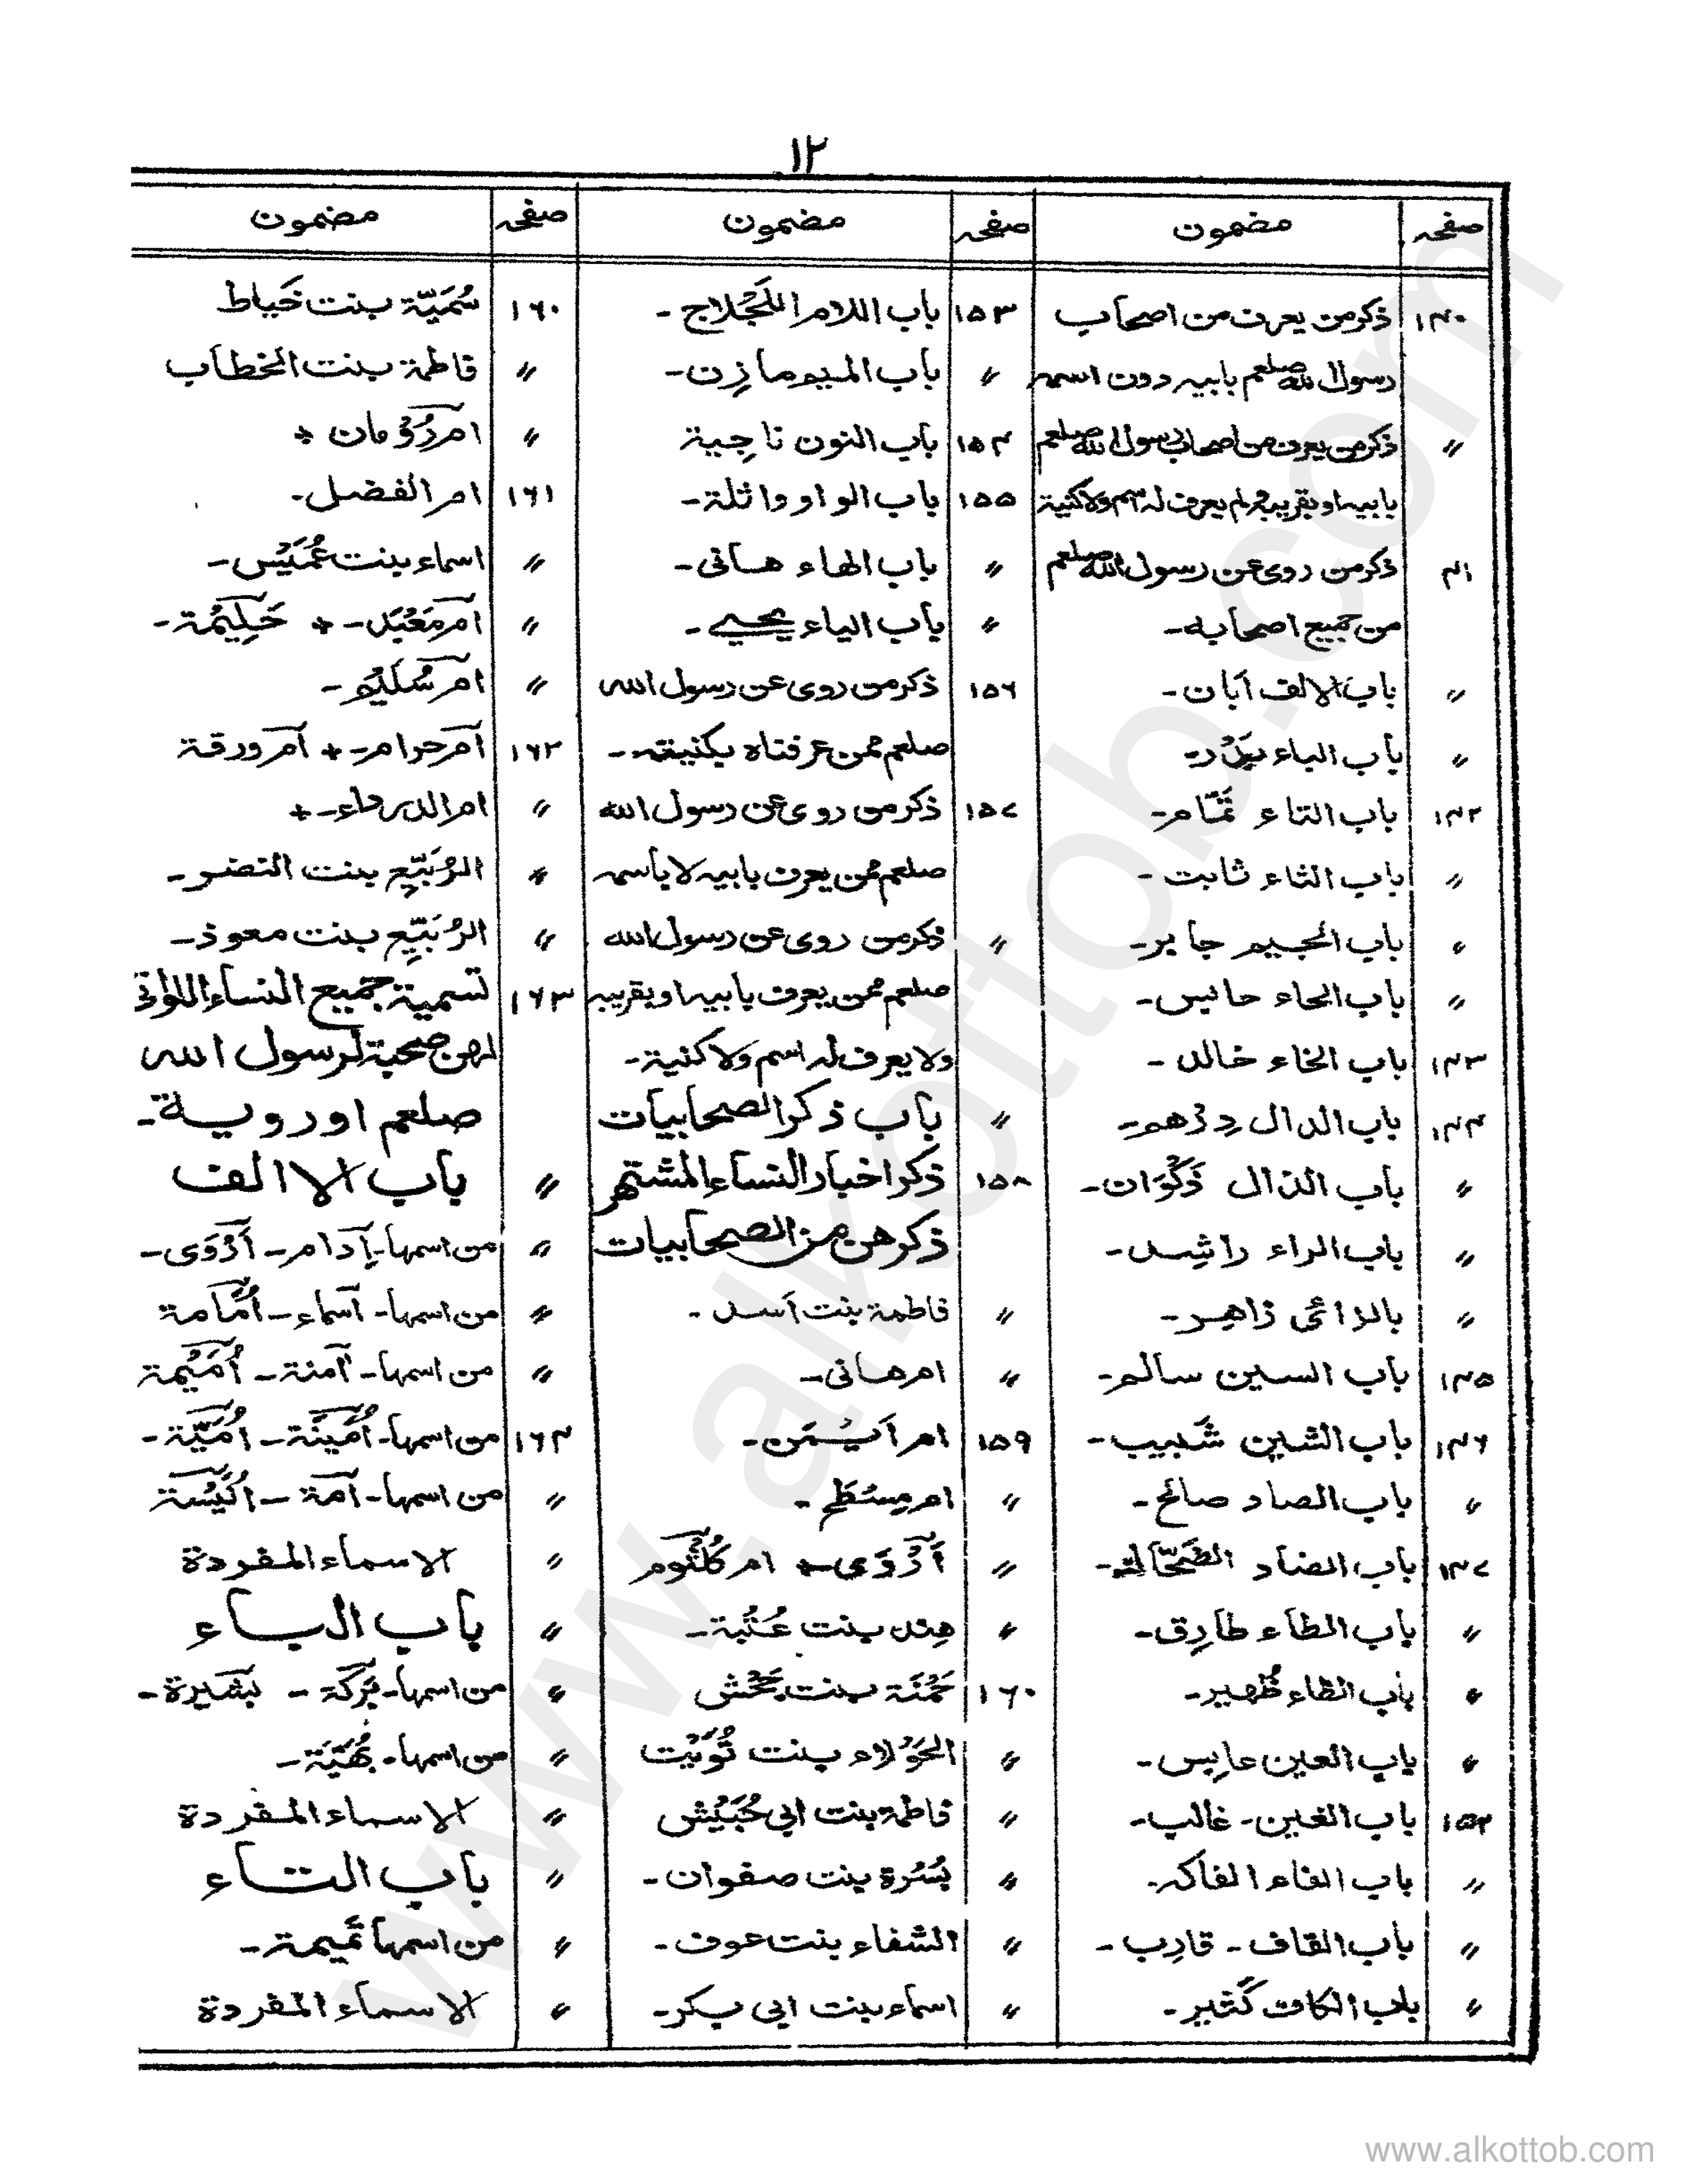 ١٢
صفحہ مضمون
١٤٠ ذكر من يعرف من اصحاب
رسول الله صلعم بابيه دون اسمه
〃 ذكر من يعرف من اصحاب رسول الله صلعم
بابيه او بقريبه ولم يعرف له اسم ولا كنية
١٤١ ذكر من روى عن رسول الله صلعم
من جميع اصحابه-
〃 باب الالف اَبان-
〃 باب الباء بَدْر-
١٤٢ باب التاء تَمّام-
〃 باب الثاء ثابت-
〃 باب الجيم جابر-
〃 باب الحاء حابس-
١٤٣ باب الخاء خالد-
١٤٤ باب الدال دِرْهم-
〃 باب الذال ذَكْوَان-
〃 باب الراء راشِد-
〃 بالزائى زاهِر-
١٤٥ باب السين سالم-
١٤٦ باب الشين شَبيب-
〃 باب الصاد صالح-
١٤٧ باب الضاد الضَحّاك-
〃 باب الطاء طارِق-
〃 باب الظاء ظُهير-
〃 باب العين عابِس-
١٥٢ باب الغين- غالب-
〃 باب الفاء الفاكه-
〃 باب القاف- قارِب-
〃 باب الكاف كَثير-
صفحہ مضمون
١٥٣ باب اللام اللَجْلاج-
〃 باب الميم مازِن-
١٥٤ باب النون ناجِية
١٥٥ باب الواو واثلة-
〃 باب الهاء هانى-
〃 باب الياء يحيى-
١٥٦ ذكر من روى عن رسول الله
صلعم ممن عرفناه بكنيته-
١٥٧ ذكر من روى عن رسول الله
صلعم ممن يعرف بابيه لا باسمه
〃 ذكر من روى عن رسول الله
صلعم ممن يعرف بابيه او بقريبه
ولا يعرف له اسم ولا كنية-
〃 باب ذكر الصحابيات
١٥٨ ذكر اخبار النساء المشتهر
ذكرهن من الصحابيات
〃 فاطمة بنت اَسد-
〃 ام هانى-
١٥٩ ام اَيْمَن-
〃 ام مِسْطَح-
〃 اَرْوَى- + ام كُلْثوم
〃 هِند بنت عُتْبة-
١٦٠ حَمْنَة بنت جَحْش
〃 الحَوْلاء بنت تُوَيْت
〃 فاطمة بنت ابي حُبَيْش
〃 بُسْرة بنت صفوان-
〃 الشفاء بنت عوف-
〃 اسماء بنت ابي بكر-
صفحہ مضمون
١٦٠ سُمَيّة بنت خَياط
〃 فاطمة بنت الخطاب
〃 ام رُوْمان +
١٦١ ام الفضل-
〃 اسماء بنت عُمَيْس-
〃 ام مَعْبَد- + حَلِيْمة-
〃 ام سُلَيْم-
١٦٢ ام حرام- + ام ورقة
〃 ام الدرداء- +
〃 الرُبَيِّع بنت النضر-
〃 الرُبَيِّع بنت معوذ-
١٦٣ تسمية جميع النساء اللواتى
لهن صحبة لرسول الله
صلعم او روية-
〃 باب الالف
〃 من اسمها- اِدام- اَرْوَى-
〃 من اسمها- اَسماء- اُمَامة
〃 من اسمها- آمنة- اُمَيْمة
١٦٤ من اسمها- اُمَيْنَة- اُمَيَّة-
〃 من اسمها- اَمة- اُنَيْسة
〃 الاسماء المفردة
〃 باب الباء
〃 من اسمها- بَرَكَة- بَشيرة-
〃 من اسمها- بُهَيَّة-
〃 الاسماء المفردة
〃 باب التاء
〃 من اسمها تَميمة-
〃 الاسماء المفردة
www.alkottob.com
www.alkottob.com